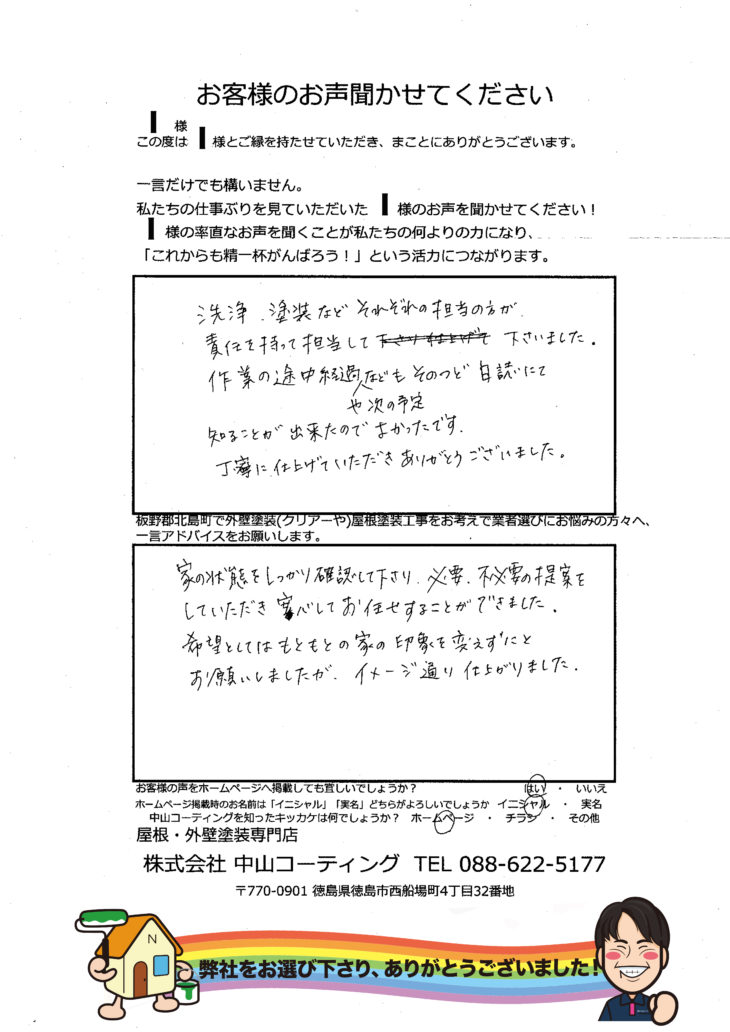 お客様のお声聞かせてください
I 様
この度は I 様とご縁を持たせていただき、まことにありがとうございます。
一言だけでも構いません。
私たちの仕事ぶりを見ていただいた I 様のお声を聞かせてください！
I 様の率直なお声を聞くことが私たちの何よりの力になり、
「これからも精一杯がんばろう！」という活力につながります。
洗浄、塗装など それぞれの担当の方が、
責任を持って担当して 下さり仕上げて 下さいました。
作業の途中経過なども そのつど 自読いにて
や次の予定
知ることが出来たのでよかったです。
丁寧に仕上げていただきありがとうございました。
板野郡北島町で外壁塗装(クリアーや)屋根塗装工事をお考えで業者選びにお悩みの方々へ、
一言アドバイスをお願いします。
家の状態をしっかり確認して下さり、必要、不必要の提案を
していただき 安心して お任せすることができました。
希望としてはもともとの家の印象を変えずにと
お願いしましたが、イメージ通り仕上がりました。
お客様の声をホームページへ掲載しても宜しいでしょうか？ はい ・ いいえ
ホームページ掲載時のお名前は「イニシャル」「実名」どちらがよろしいでしょうか イニシャル ・ 実名
中山コーティングを知ったキッカケは何でしょうか？ ホームページ ・ チラシ ・ その他
屋根・外壁塗装専門店
株式会社 中山コーティング TEL 088-622-5177
〒770-0901 徳島県徳島市西船場町4丁目32番地
N
弊社をお選び下さり、ありがとうございました！